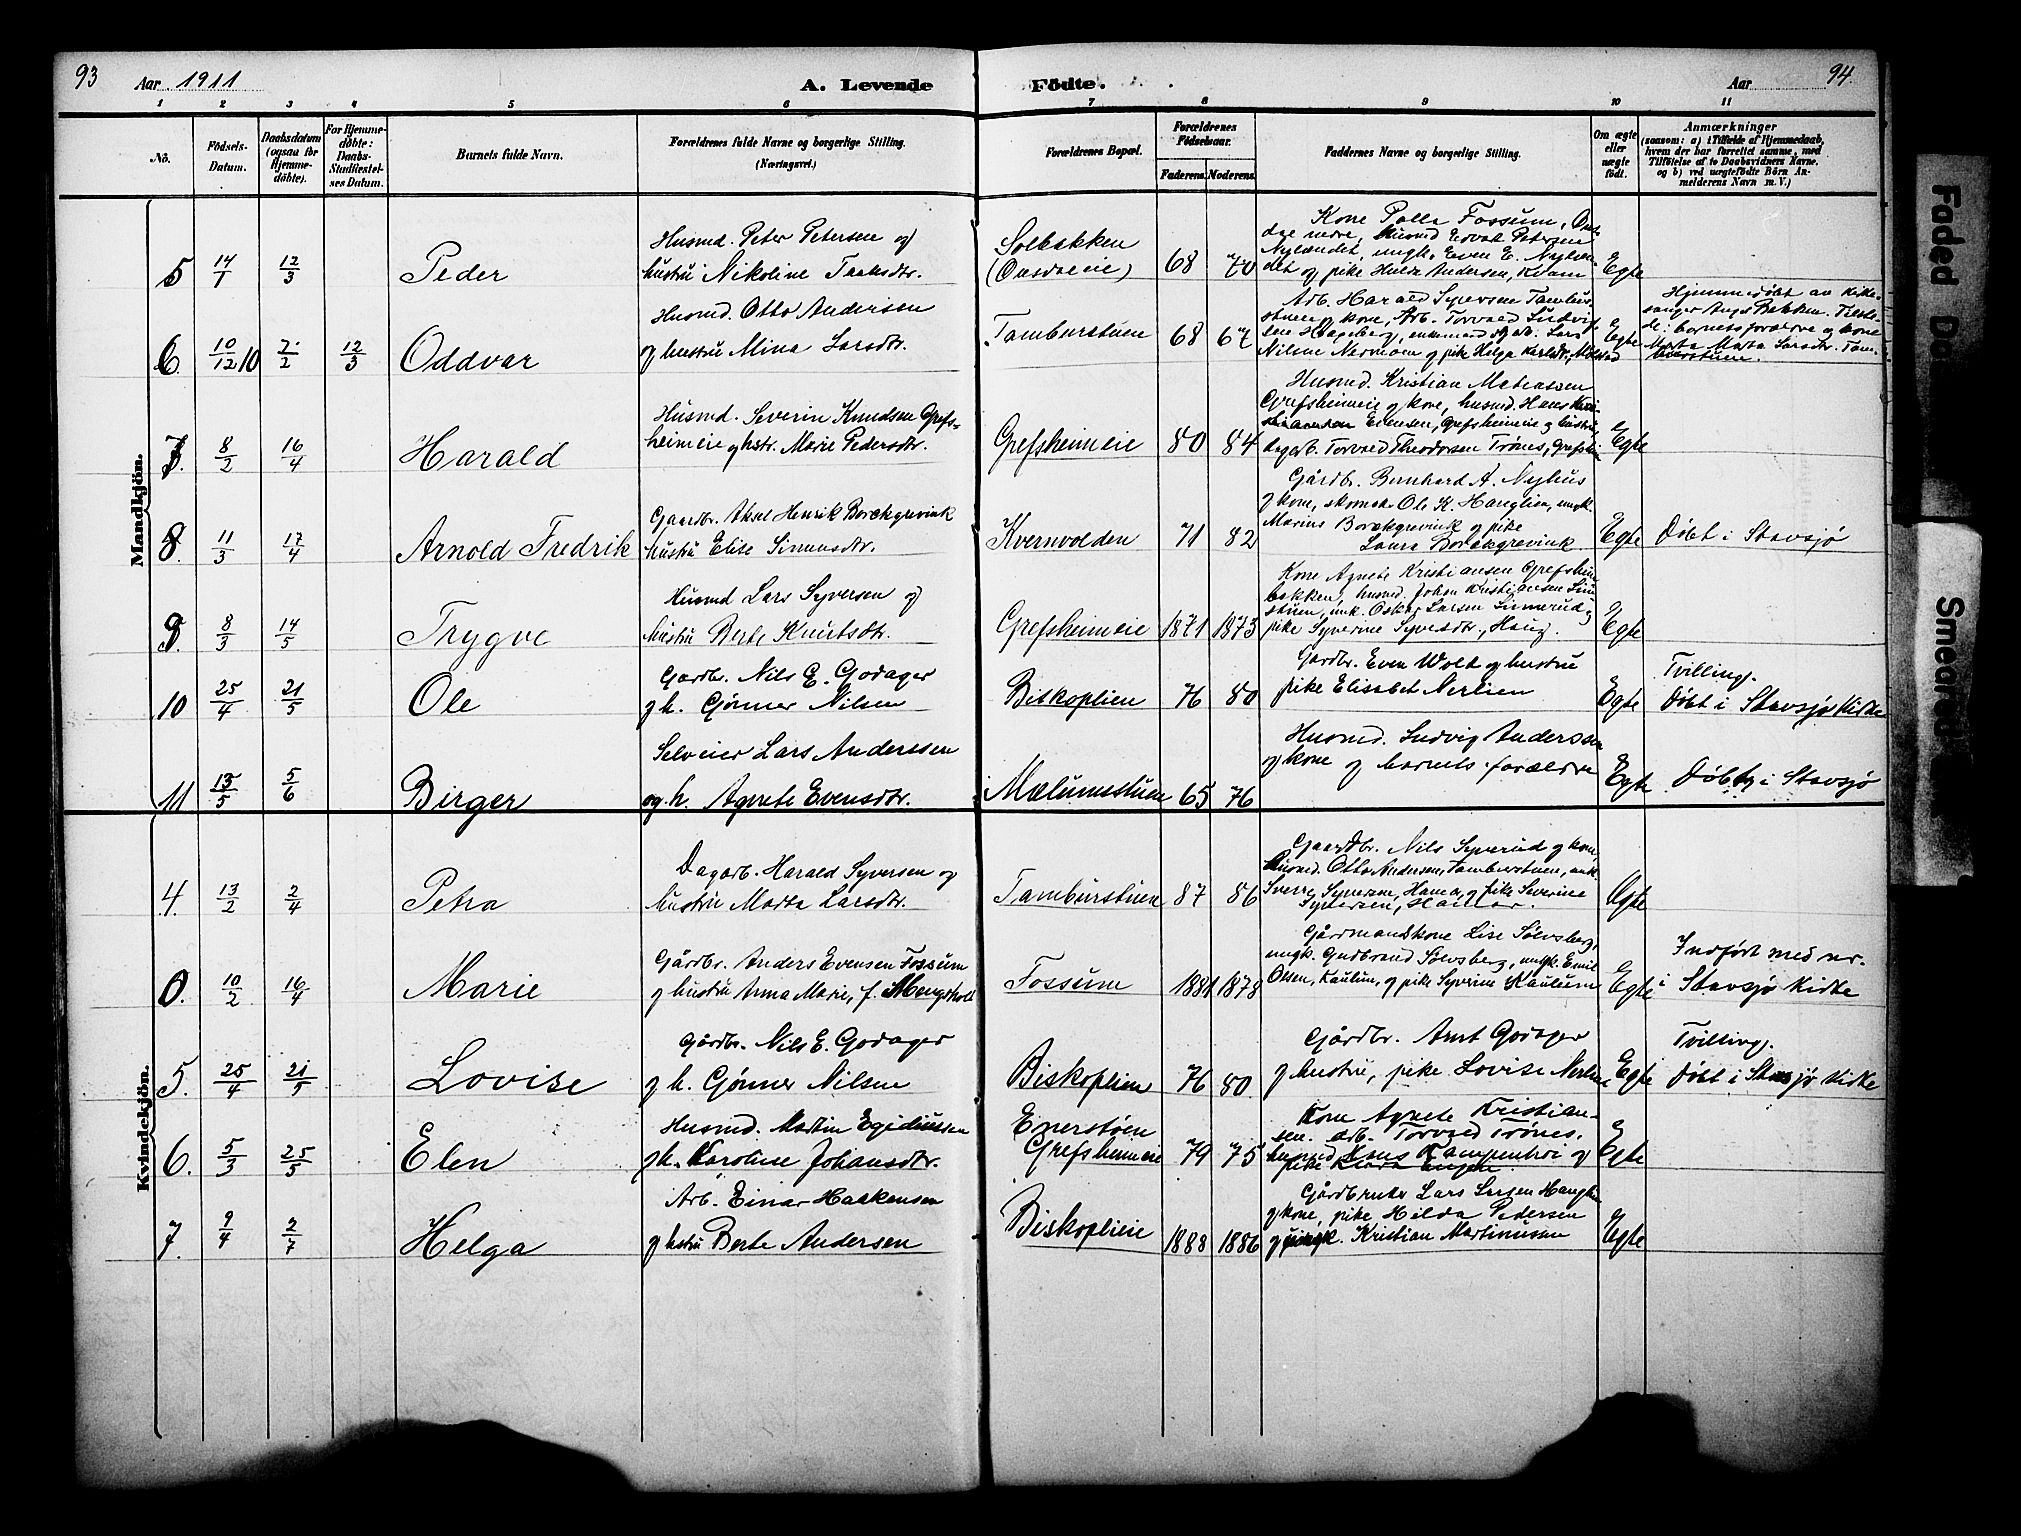 93
Aar 1911
A. Levende
Födte.
Aar
94.
1 2 3 4 5 6 7 8 9 10 11
No.
Födsels-
Datum.
Daabsdatum
(ogsaa for
Hjemme-
döbte).
For Hjemme-
döbte:
Daabs-
Stadfæstel-
ses Datum.
Barnets fulde Navn.
Forældrenes fulde Navne og borgerlige Stilling.
(Næringsvei.)
Forældrenes Bopæl.
Forældrenes
Födselsaar.
Faderens.
Moderens.
Faddernes Navne og borgerlige Stilling.
Om ægte
eller
uægte
født.
Anmærkninger
(saasom: a) i Tilfælde af Hjemmedaab,
hvem der har forrettet samme, med
Tilföielse af to Daabsvidners Navne,
og b) ved uægtefödte Börn An-
melderens Navn m. V.)
Mandkjön.
5 14/1 12/3 Peder
Husmd. Peter Petersen og
hustru Nikoline
Solbakken
68 70
Kone Fossum,
Nylændet, ungk. Even E.
og pike Andersen, Kvam
Egte
6. 10/12 10 2/2 12/3 Oddvar
Husmd. Otto Anderssen
og hustru Mina Larsdtr.
Tamburstuen
68 67
Arb. Harald Syversen
og kone, Arb. Torvald
Nilsen og pike Helga
Egte
Hjemmedøbt av kirke-
barnets forældre og kone
Marta Larsdtr. Tam-
burstuen.
7. 8/2 16/4 Harald
Husmd. Severin Knudsen Grefs-
heimeie og hstr. Marie Pedersdtr.
Grefsheimeie
80 84
Husmd. Kristian Matiassen
Grefsheimeie og kone, husmd. Hans
Evensen, Grefsheimeie og hustru,
Torvald Theodorsen Trönes,
Egte
8. 11/3 17/4 Arnold Fredrik
Gaardbr. Aksel Henrik Borchgrevink
hustru Elise Simensdtr.
Kvernvolden
71 82
Gårdbr. Bernhard A. Nyhus
og kone, Ole K. Hauglien, ungk.
Marius Borchgrevink og pike
Laura Borchgrevink.
Egte
Døbt i Stavsjø
9. 8/3 14/5 Trygve
Husmd Lars Syversen og
hustru Berte Knutsdtr.
Grefsheimeie
1871 1873
Kone Agnete Kristiansen
bakken, husmd. Johan Kristiansen
stuen, unk. Oskar Larsen
pike Syverine Haug.
Egte
10 25/4 21/5 Ole
Gardbr. Nils E. Godager
og h. Gønner Nilsen
Biskoplien
76 80
Gardbr. Even Wold og hustru
pike Elisabet Nerlien
Egte
Tvilling.
Døbt i Stavsjø kirke
11 13/5 5/6 Birger
Selveier Lars Anderssen
og h. Agnete Evensdtr.
Mælumsstuen
65 76
Husmd. Ludvig Anderssen
og kone og barnets forældre
Egte
Døbt i Stavsjø
Kvindekjön.
4. 13/2 2/4 Petra
Dagarb. Harald Syversen og
hustru Marta Larsdtr.
Tamburstuen
87 86
Gaardbr. Nils Syverud og kone,
Husmd. Otto Andersen, Tamburstuen, unk.
Sverre Syversen, og pike Severine
Syversen,
Egte
0. 10/2 16/4 Marie
Gårdbr. Anders Evensen Fossum
og hustru Anna Marie, f.
Fossum
1881 1878
Gårdmandskone Lise Sölvsberg,
ungk. Gudbrand Sölvsberg, ungk. Emil
Olsen, Kaulum, og pike Syverine Kaulum
Egte
Indført med nr.
i Stavsjø kirke
5. 25/4 21/5 Lovise
Gårdbr. Nils E. Godager
og h. Gønner Nilsen
Biskoplien
76 80
Gårdbr. Arnt Godager
og hustru, pike Lovise Nerlien
Egte
Tvilling.
døbt i Stavsjø kirke
6. 5/3 25/5 Elen
Husmd. Martin Egidiussen
og h. Karoline Johansdtr.
Enerstøen
Grefsheimeie
79 75
Kone Agnete Kristian-
sen. arb. Torvald Trönes.
husmd og
pike Klara Engen.
Egte
7. 9/4 2/7 Helga
Arb. Einar Haakensen
og hstru Berte Andersen
Biskoplieie
1888 1886
Gårdbruker Lars Larsen
og kone, pike Hilda Pedersen
og ungk. Kristian Martinussen
Egte
Faded Do
Smeared